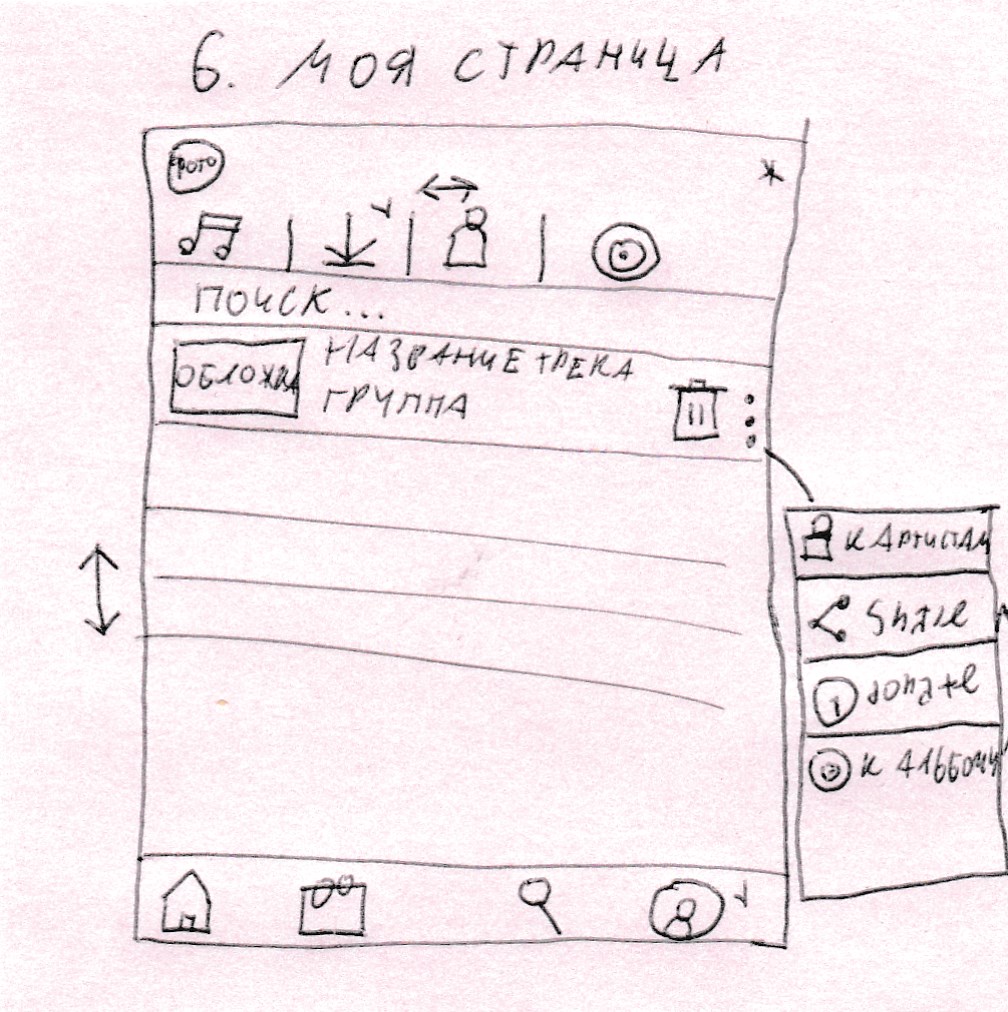 6. МОЯ СТРАНИЦА
ФОТО
ПОИСК...
ОБЛОЖКА
НАЗВАНИЕ ТРЕКА
ГРУППА
К АРТИСТАМ
Share
1 donate
К АЛЬБОМУ